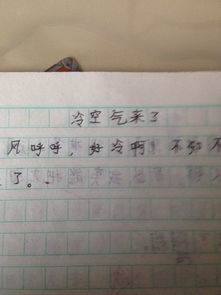 冷空气来了
风呼呼，好冷啊
了。